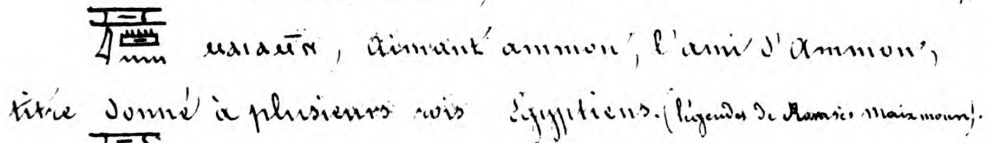 𓇋𓏠𓈖 ⲙⲁⲓⲁⲙⲛ̄, aimant ammon, l'ami d'Ammon,
titre donné à plusieurs rois Égyptiens. (légendes de Ramsès maiamoun).